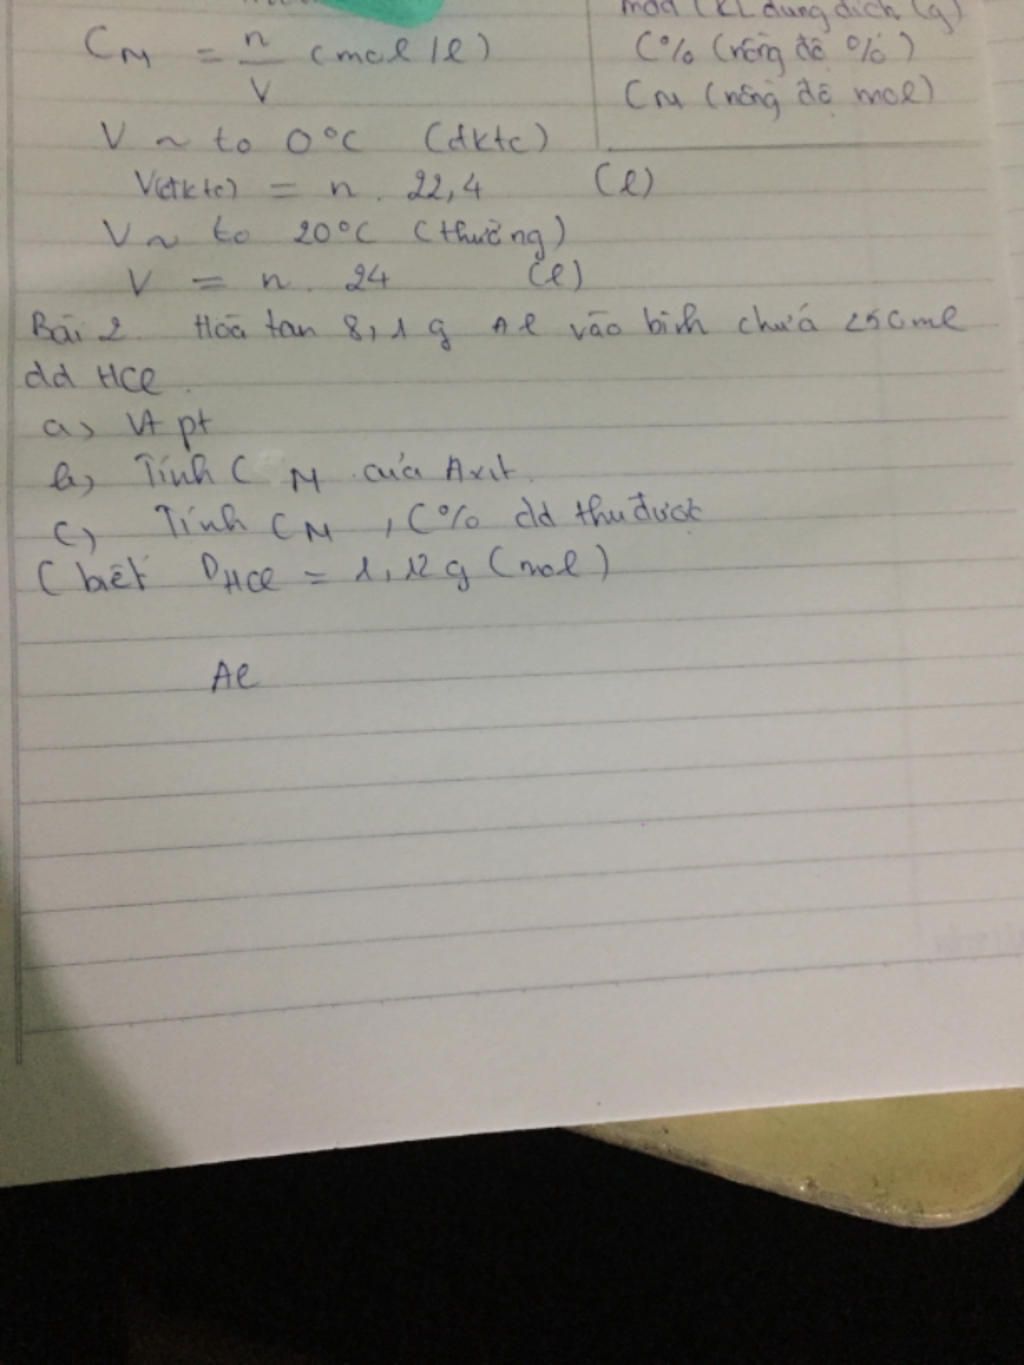 CM = n/V (mol/l)
mdd (KL dung dịch (g)
C% (nồng độ %)
CM (nồng độ mol)
V ~ to 0°C (đktc)
V(đktc) = n. 22,4 (l)
V ~ to 20°C (thường)
V = n. 24 (l)
Bài 2. Hoà tan 8,1 g Al vào bình chứa 250ml
dd HCl.
a, Vt pt
b, Tính CM của Axit.
c) Tính CM, C% dd thu được
(biết DHCl = 1,12 g (mol)
Al